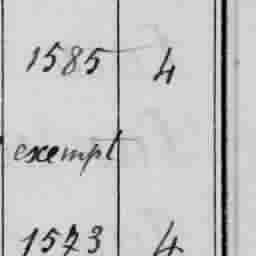 1585 4
exempt
1573 4